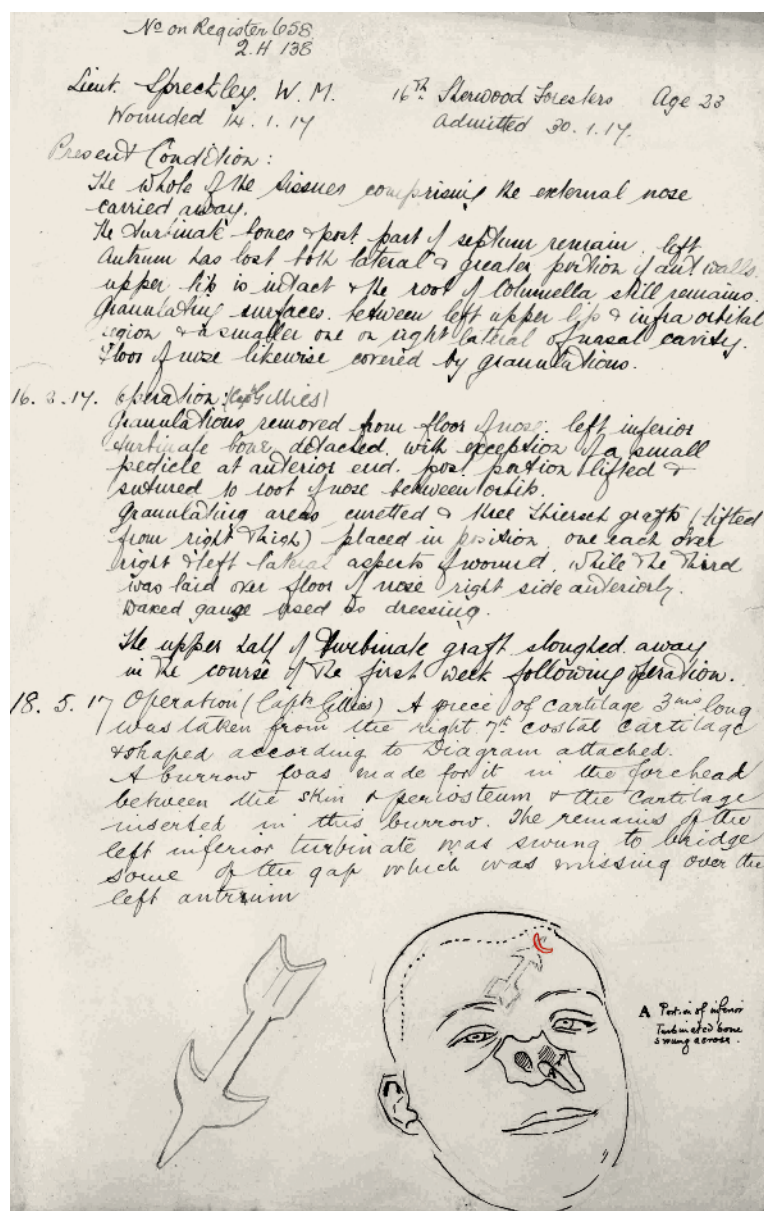 No on Register 658
2.H 138
Lieut. Spreckley. W. M. 16TH Sherwood Foresters. Age 23
Wounded 14.1.17 Admitted 30.1.17.
Present Condition:
The whole of the tissues comprising the external nose
carried away.
The turbinate bones & post. part of septum remain. left
Antrum has lost both lateral & greater portion of ant walls.
upper lip is intact & the root of Columella still remains.
Granulating surfaces. between left upper lip & infra orbital
region & a smaller one on right lateral of nasal cavity.
Floor of nose likewise covered by granulations.
16. 3. 17. Operation: (Capt Gillies)
Granulations removed from floor of nose. left inferior
turbinate bone, detached, with exception of a small
pedicle at anterior end. pos. portion lifted &
sutured to root of nose between orbits.
Granulating areas curetted & three Thiersch grafts (lifted
from right thigh) placed in position, one each over
right & left lateral aspects of wound, while the third
was laid over floor of nose right side anteriorly.
Waxed gauge used as dressing.
The upper half of turbinate graft sloughed away
in the course of the first week following operation.
18. 5. 17 Operation (Capt. Gillies) A piece of cartilage 3 ins long
was taken from the right 7th costal cartilage
& shaped according to Diagram attached.
A burrow was made for it in the forehead
between the skin & periosteum & the cartilage
inserted in this burrow. The remains of the
left inferior turbinate was swung to bridge
some of the gap which was missing over the
left antrum
A Portion of inferior
Turbinated bone
swung across.
A